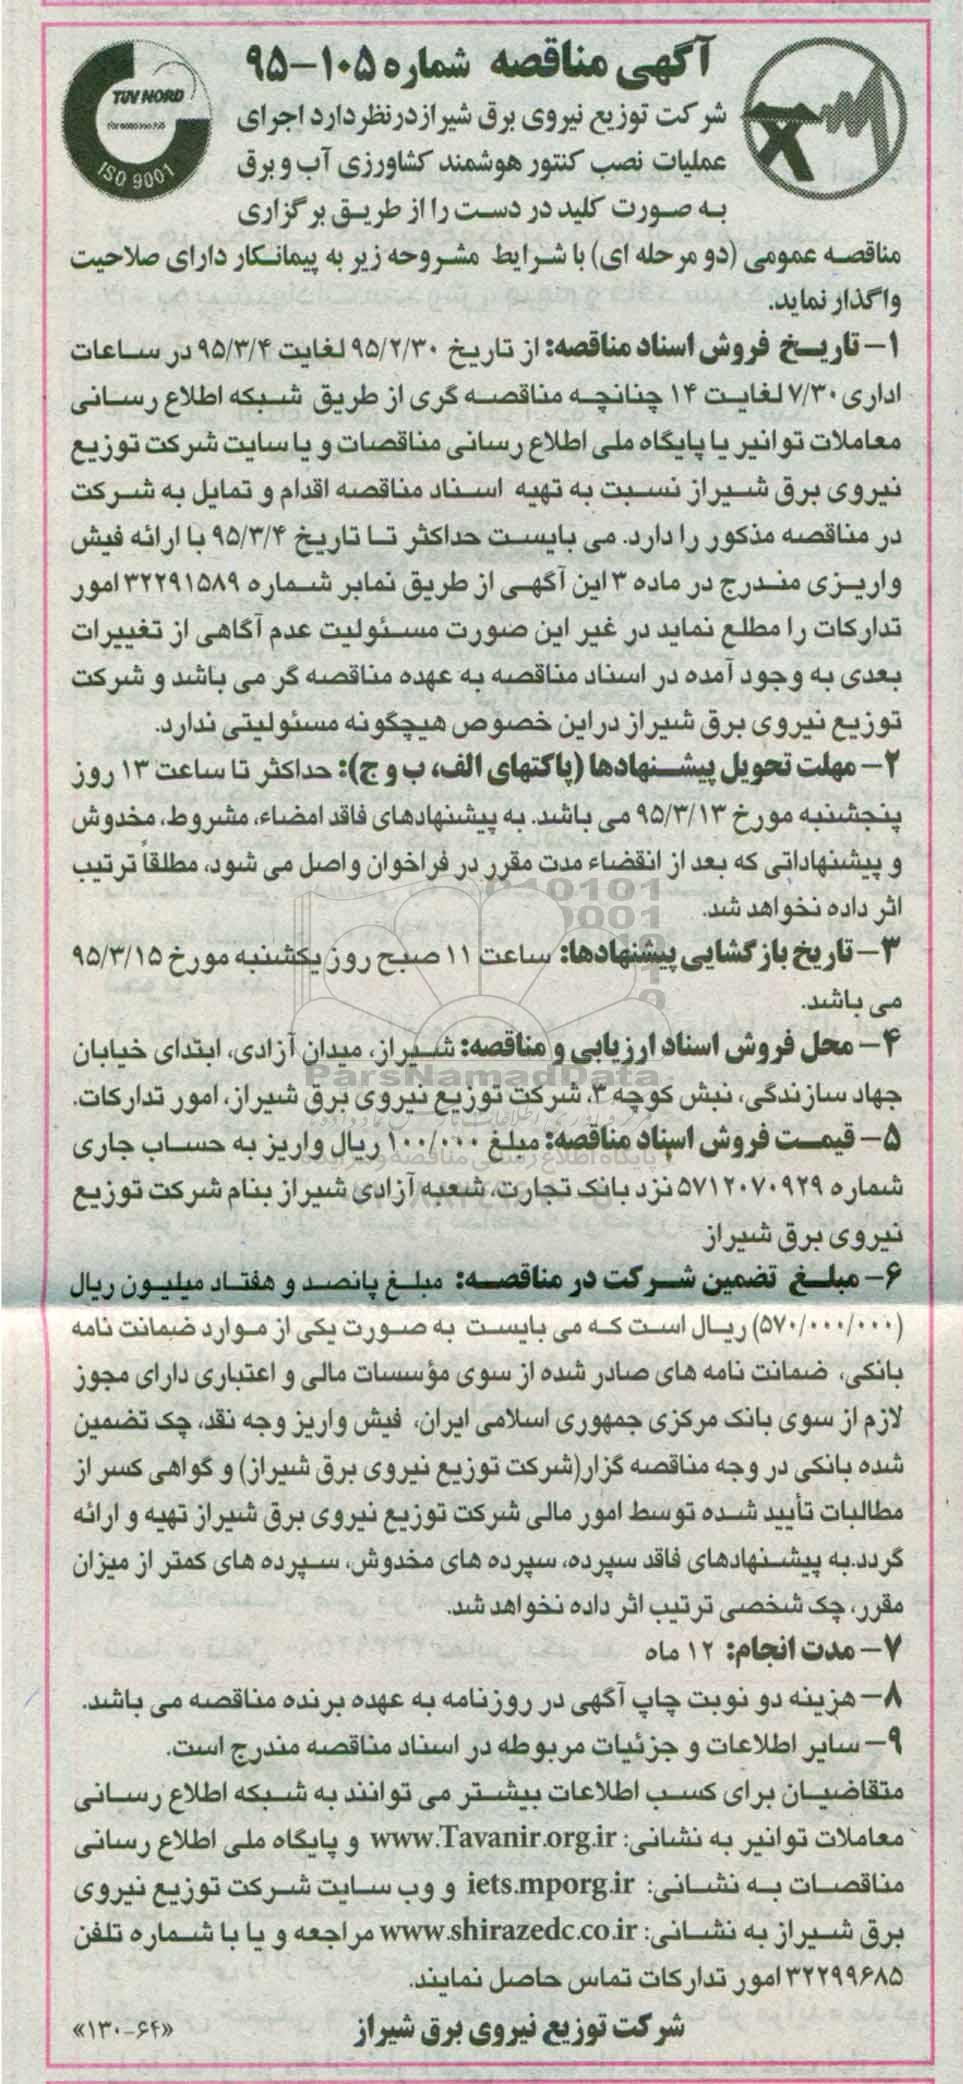 آگهی مناقصه شماره ۱۰۵-۹۵
TÜV NORD
ISO 9001
شرکت توزیع نیروی برق شیراز در نظر دارد اجرای
عملیات نصب کنتور هوشمند کشاورزی آب و برق
به صورت کلید در دست را از طریق برگزاری
مناقصه عمومی (دو مرحله ای) با شرایط مشروحه زیر به پیمانکار دارای صلاحیت
واگذار نماید.
۱- تاریخ فروش اسناد مناقصه: از تاریخ ۹۵/۲/۳۰ لغایت ۹۵/۳/۴ در ساعات
اداری ۷/۳۰ لغایت ۱۴ چنانچه مناقصه گری از طریق شبکه اطلاع رسانی
معاملات توانیر یا پایگاه ملی اطلاع رسانی مناقصات و یا سایت شرکت توزیع
نیروی برق شیراز نسبت به تهیه اسناد مناقصه اقدام و تمایل به شرکت
در مناقصه مذکور را دارد. می بایست حداکثر تا تاریخ ۹۵/۳/۴ با ارائه فیش
واریزی مندرج در ماده ۳ این آگهی از طریق نمابر شماره ۳۲۲۹۱۵۸۹ امور
تدارکات را مطلع نماید در غیر این صورت مسئولیت عدم آگاهی از تغییرات
بعدی به وجود آمده در اسناد مناقصه به عهده مناقصه گر می باشد و شرکت
توزیع نیروی برق شیراز دراین خصوص هیچگونه مسئولیتی ندارد.
۲- مهلت تحویل پیشنهادها (پاکتهای الف، ب و ج): حداکثر تا ساعت ۱۳ روز
پنجشنبه مورخ ۹۵/۳/۱۳ می باشد. به پیشنهادهای فاقد امضاء، مشروط، مخدوش
و پیشنهاداتی که بعد از انقضاء مدت مقرر در فراخوان واصل می شود، مطلقاً ترتیب
اثر داده نخواهد شد.
۳- تاریخ بازگشایی پیشنهادها: ساعت ۱۱ صبح روز یکشنبه مورخ ۹۵/۳/۱۵
می باشد.
۴- محل فروش اسناد ارزیابی و مناقصه: شیراز، میدان آزادی، ابتدای خیابان
ParsNamadData
جهاد سازندگی، نبش کوچه ۳، شرکت توزیع نیروی برق شیراز، امور تدارکات.
۵- قیمت فروش اسناد مناقصه: مبلغ ۱۰۰/۰۰۰ ریال واریز به حساب جاری
پایگاه اطلاع رسانی مناقصه و مزایده
شماره ۵۷۱۲۰۷۰۹۲۹ نزد بانک تجارت، شعبه آزادی شیراز بنام شرکت توزیع
نیروی برق شیراز
۶- مبلغ تضمین شرکت در مناقصه: مبلغ پانصد و هفتاد میلیون ریال
(۵۷۰/۰۰۰/۰۰۰) ریال است که می بایست به صورت یکی از موارد ضمانت نامه
بانکی، ضمانت نامه های صادر شده از سوی مؤسسات مالی و اعتباری دارای مجوز
لازم از سوی بانک مرکزی جمهوری اسلامی ایران، فیش واریز وجه نقد، چک تضمین
شده بانکی در وجه مناقصه گزار(شرکت توزیع نیروی برق شیراز) و گواهی کسر از
مطالبات تأیید شده توسط امور مالی شرکت توزیع نیروی برق شیراز تهیه و ارائه
گردد.به پیشنهادهای فاقد سپرده، سپرده های مخدوش، سپرده های کمتر از میزان
مقرر، چک شخصی ترتیب اثر داده نخواهد شد.
۷- مدت انجام: ۱۲ ماه
۸- هزینه دو نوبت چاپ آگهی در روزنامه به عهده برنده مناقصه می باشد.
۹- سایر اطلاعات و جزئیات مربوطه در اسناد مناقصه مندرج است.
متقاضیان برای کسب اطلاعات بیشتر می توانند به شبکه اطلاع رسانی
معاملات توانیر به نشانی: www.Tavanir.org.ir و پایگاه ملی اطلاع رسانی
مناقصات به نشانی: iets.mporg.ir و وب سایت شرکت توزیع نیروی
برق شیراز به نشانی: www.shirazedc.co.ir مراجعه و یا با شماره تلفن
۳۲۲۹۹۶۸۵ امور تدارکات تماس حاصل نمایند.
شرکت توزیع نیروی برق شیراز
«۱۳۰-۶۴»